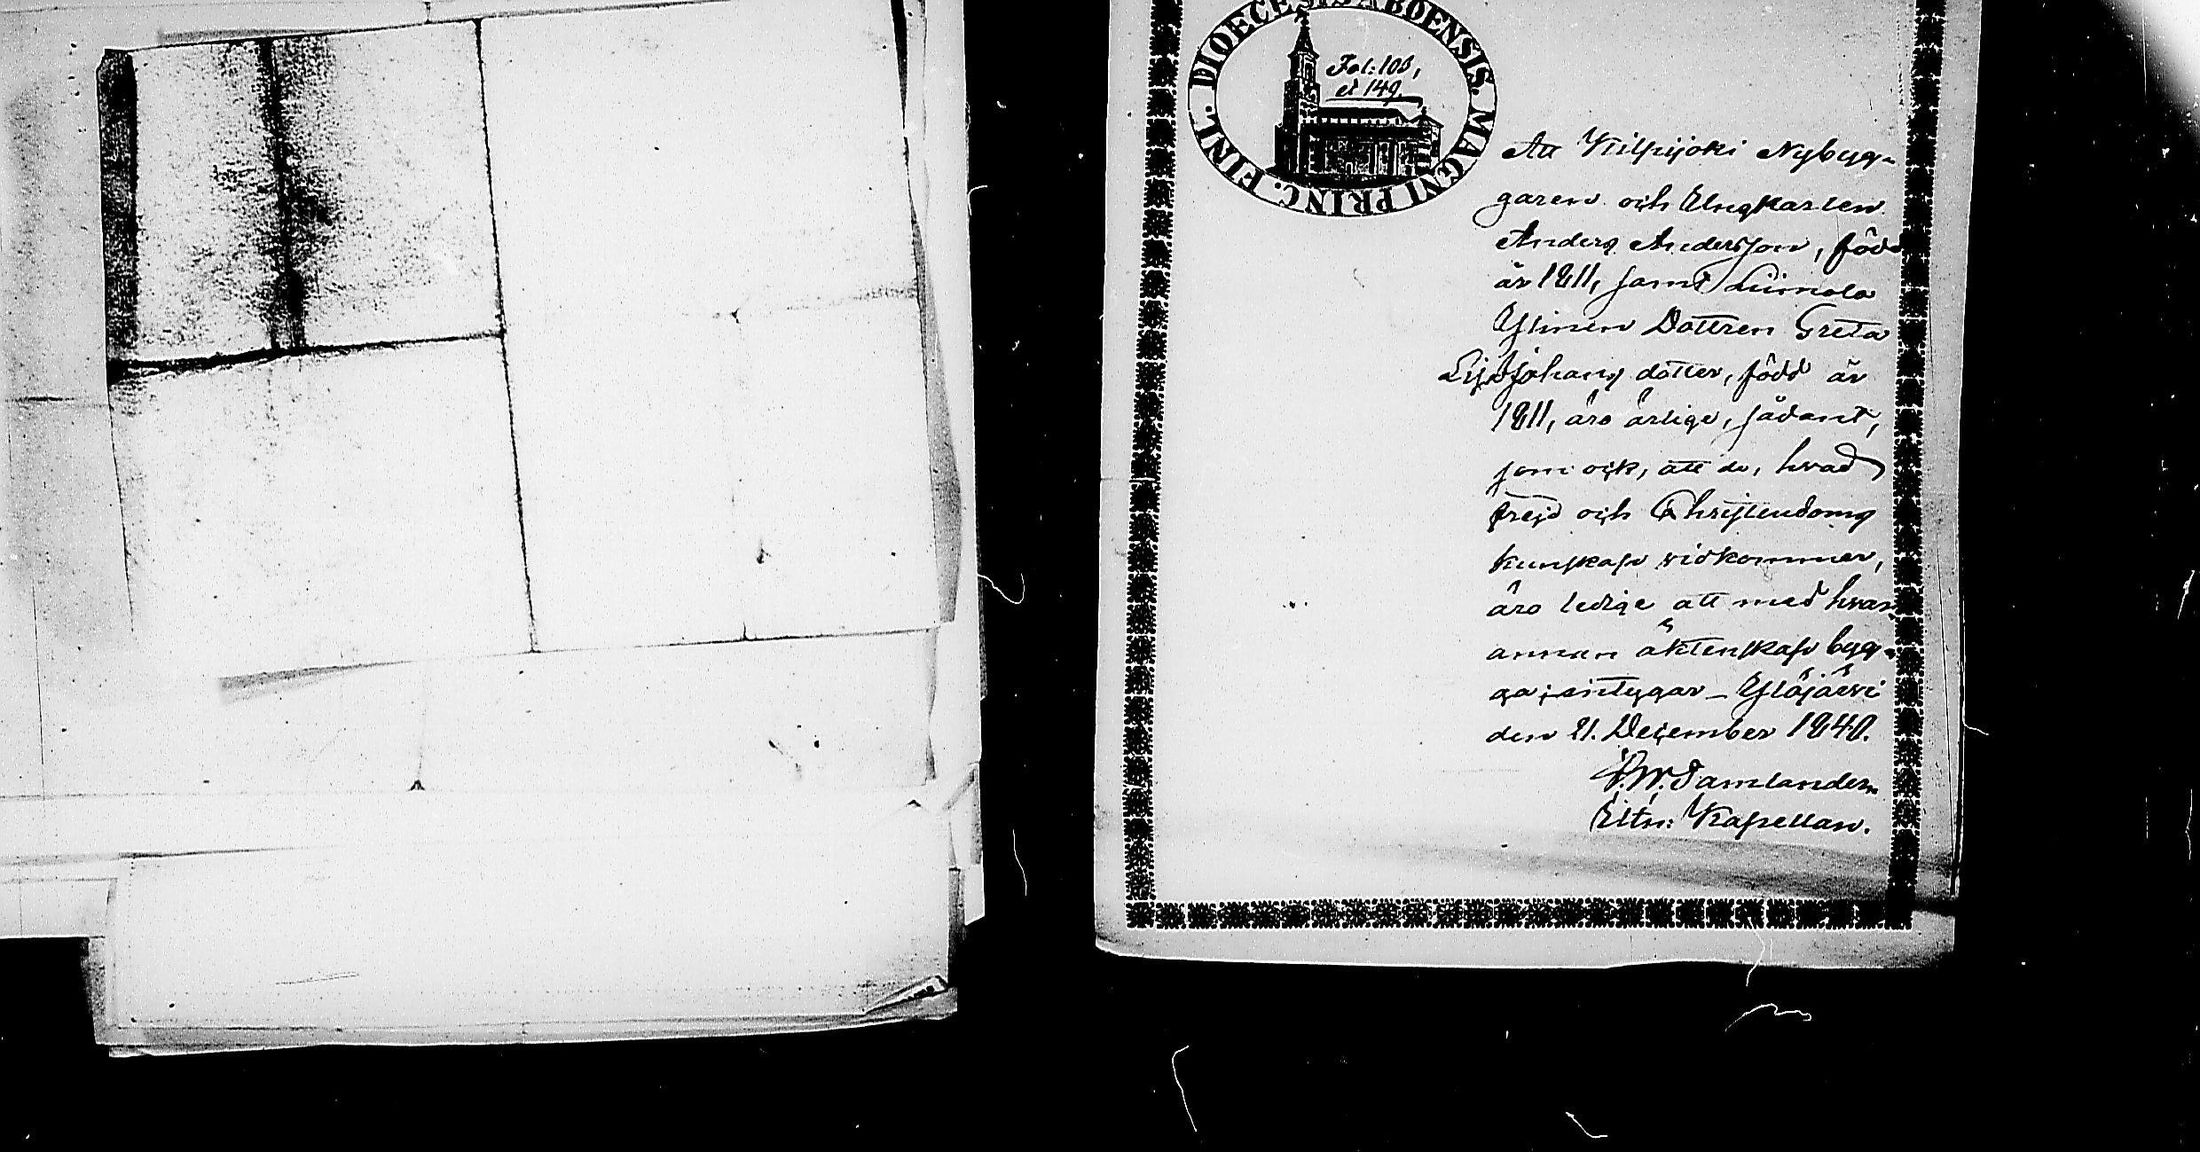 DIOECESIS ABOENSIS. MAGNI PRINC. FINL.
Fol: 108,
et 149.
Att Kilpijoki Nybyg-
garen och Ungkarlen
Anders Andersson, född
år 1811, samt Liimola
Ylinen Dottren Greta
Lisa Johans dotter, född år
1811, äro ärlige, sådant,
som ock, att de, hvad
frejd och Christendoms
kunskap vidkommer,
äro ledige att med hvar-
annan äktenskap byg-
ga; intygar _ Ylöjärvi
den 21. December 1840.
W. Tamlander.
Kapellan.